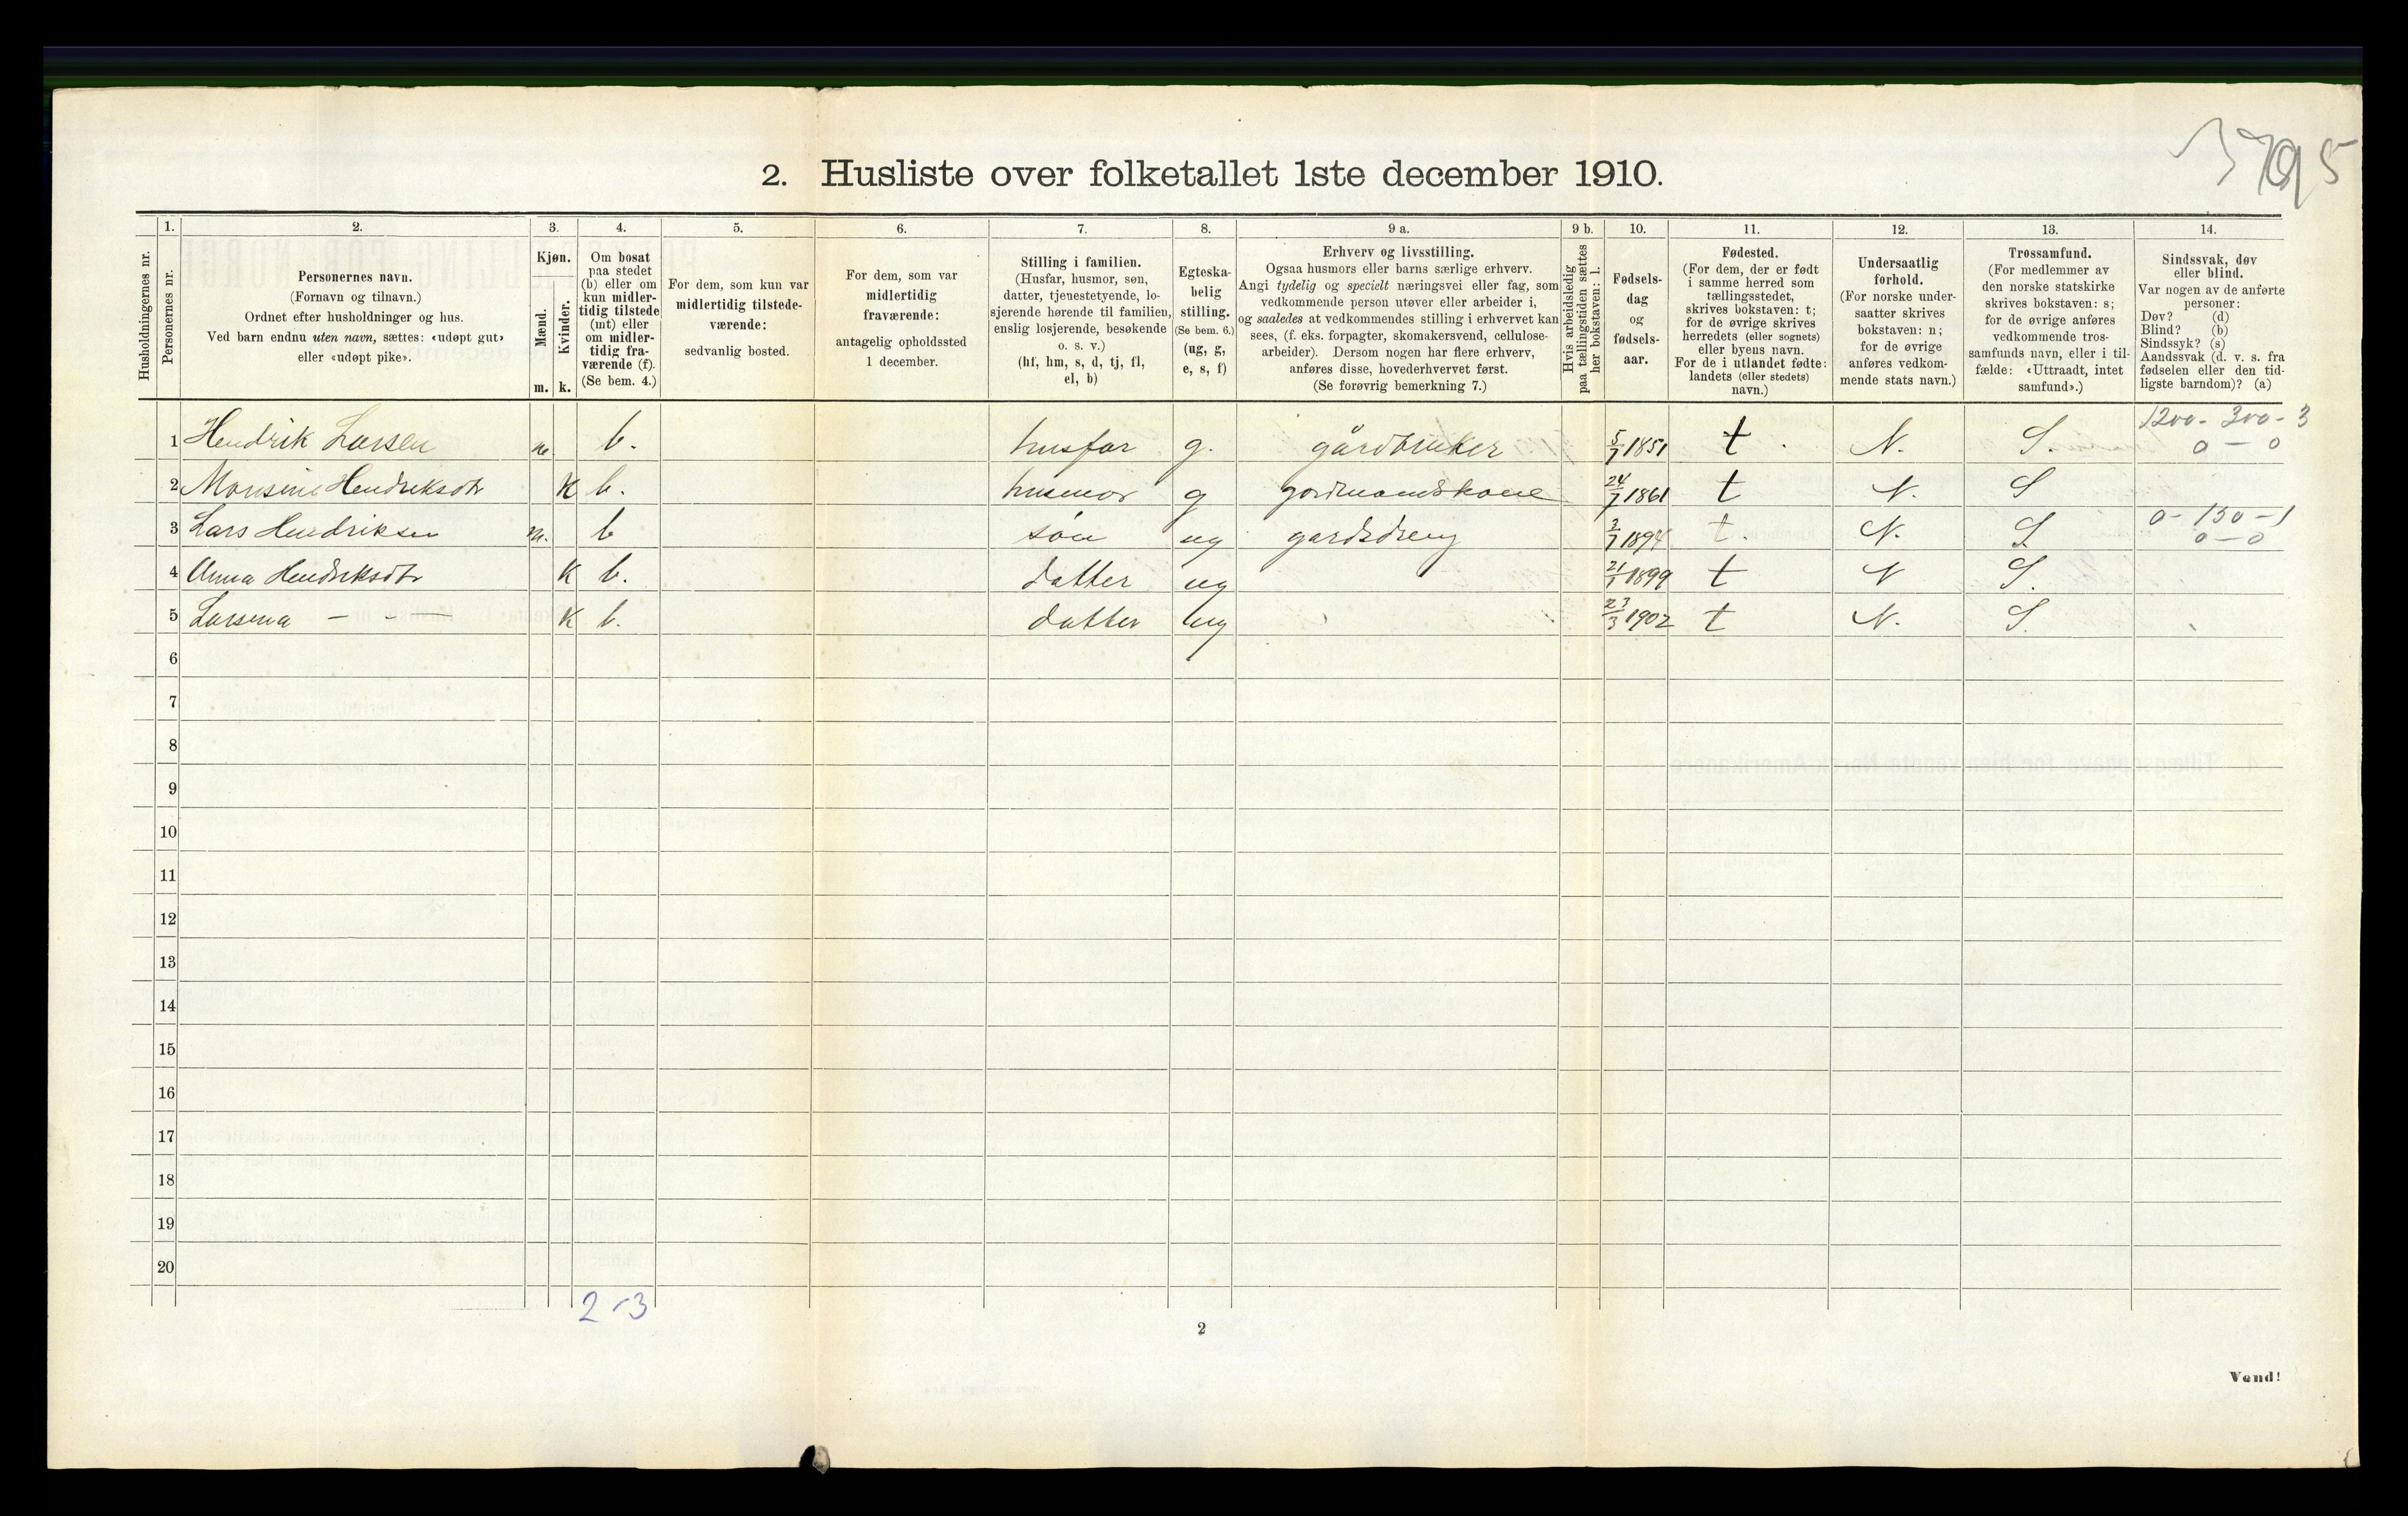 2. Husliste over folketallet 1ste december 1910.
1. 2. 3. 4. 5. 6. 7. 8. 9 a. 9 b. 10. 11. 12. 13. 14.
Husholdningernes nr.
Personernes nr.
Personernes navn.
(Fornavn og tilnavn.)
Ordnet efter husholdninger og hus.
Ved barn endnu uten navn, sættes: «udøpt gut»
eller «udøpt pike».
Kjøn.
Mænd.
Kvinder.
m. k.
Om bosat
paa stedet
(b) eller om
kun midler-
tidig tilstede
(mt) eller
om midler-
tidig fra-
værende (f).
(Se bem. 4.)
For dem, som kun var
midlertidig tilstede-
værende:
sedvanlig bosted.
For dem, som var
midlertidig
fraværende:
antagelig opholdssted
1 december.
Stilling i familien.
(Husfar, husmor, søn,
datter, tjenestetyende, lo-
sjerende hørende til familien,
enslig losjerende, besøkende
o. s. v.)
(hf, hm, s, d, tj, fl,
el, b)
Egteska-
belig
stilling.
(Se bem. 6.)
(ug, g,
e, s, f)
Erhverv og livsstilling.
Ogsaa husmors eller barns særlige erhverv.
Angi tydelig og specielt næringsvei eller fag, som
vedkommende person utøver eller arbeider i,
og saaledes at vedkommendes stilling i erhvervet kan
sees, (f. eks. forpagter, skomakersvend, cellulose-
arbeider). Dersom nogen har flere erhverv,
anføres disse, hovederhvervet først.
(Se forøvrig bemerkning 7.)
Hvis arbeidsledig
paa tællingstiden sættes
her bokstaven: l.
Fødsels-
dag
og
fødsels-
aar.
Fødested.
(For dem, der er født
i samme herred som
tællingsstedet,
skrives bokstaven: t;
for de øvrige skrives
herredets (eller sognets)
eller byens navn.
For de i utlandet fødte:
landets (eller stedets)
navn.)
Undersaatlig
forhold.
(For norske under-
saatter skrives
bokstaven: n;
for de øvrige
anføres vedkom-
mende stats navn.)
Trossamfund.
(For medlemmer av
den norske statskirke
skrives bokstaven: s;
for de øvrige anføres
vedkommende tros-
samfunds navn, eller i til-
fælde: «Uttraadt, intet
samfund».)
Sindssvak, døv
eller blind.
Var nogen av de anførte
personer:
Døv? (d)
Blind? (b)
Sindssyk? (s)
Aandssvak (d. v. s. fra
fødselen eller den tid-
ligste barndom)? (a)
1200 - 300 - 3
1 Hendrik Larsen m b. husfar g. gårdbruker 5/7 1851 t. N. S. 0 - 0
2 Monsine Hendriksdtr K b. husmor g gardmandskone 24/7 1861 t N. S
0 - 150 - 1
3 Lars Hendriksen m. b søn ug gardsdreng 3/7 1894 t. N. S 0 - 0
4 Anna Hendriksdtr K b. datter ug 21/1 1899 t N S.
5 Larsena — - — K b. datter ug 23/3 1902 t N. S.
6
7
8
9
10
11
12
13
14
15
16
17
18
19
20
2 - 3
2
Vend!